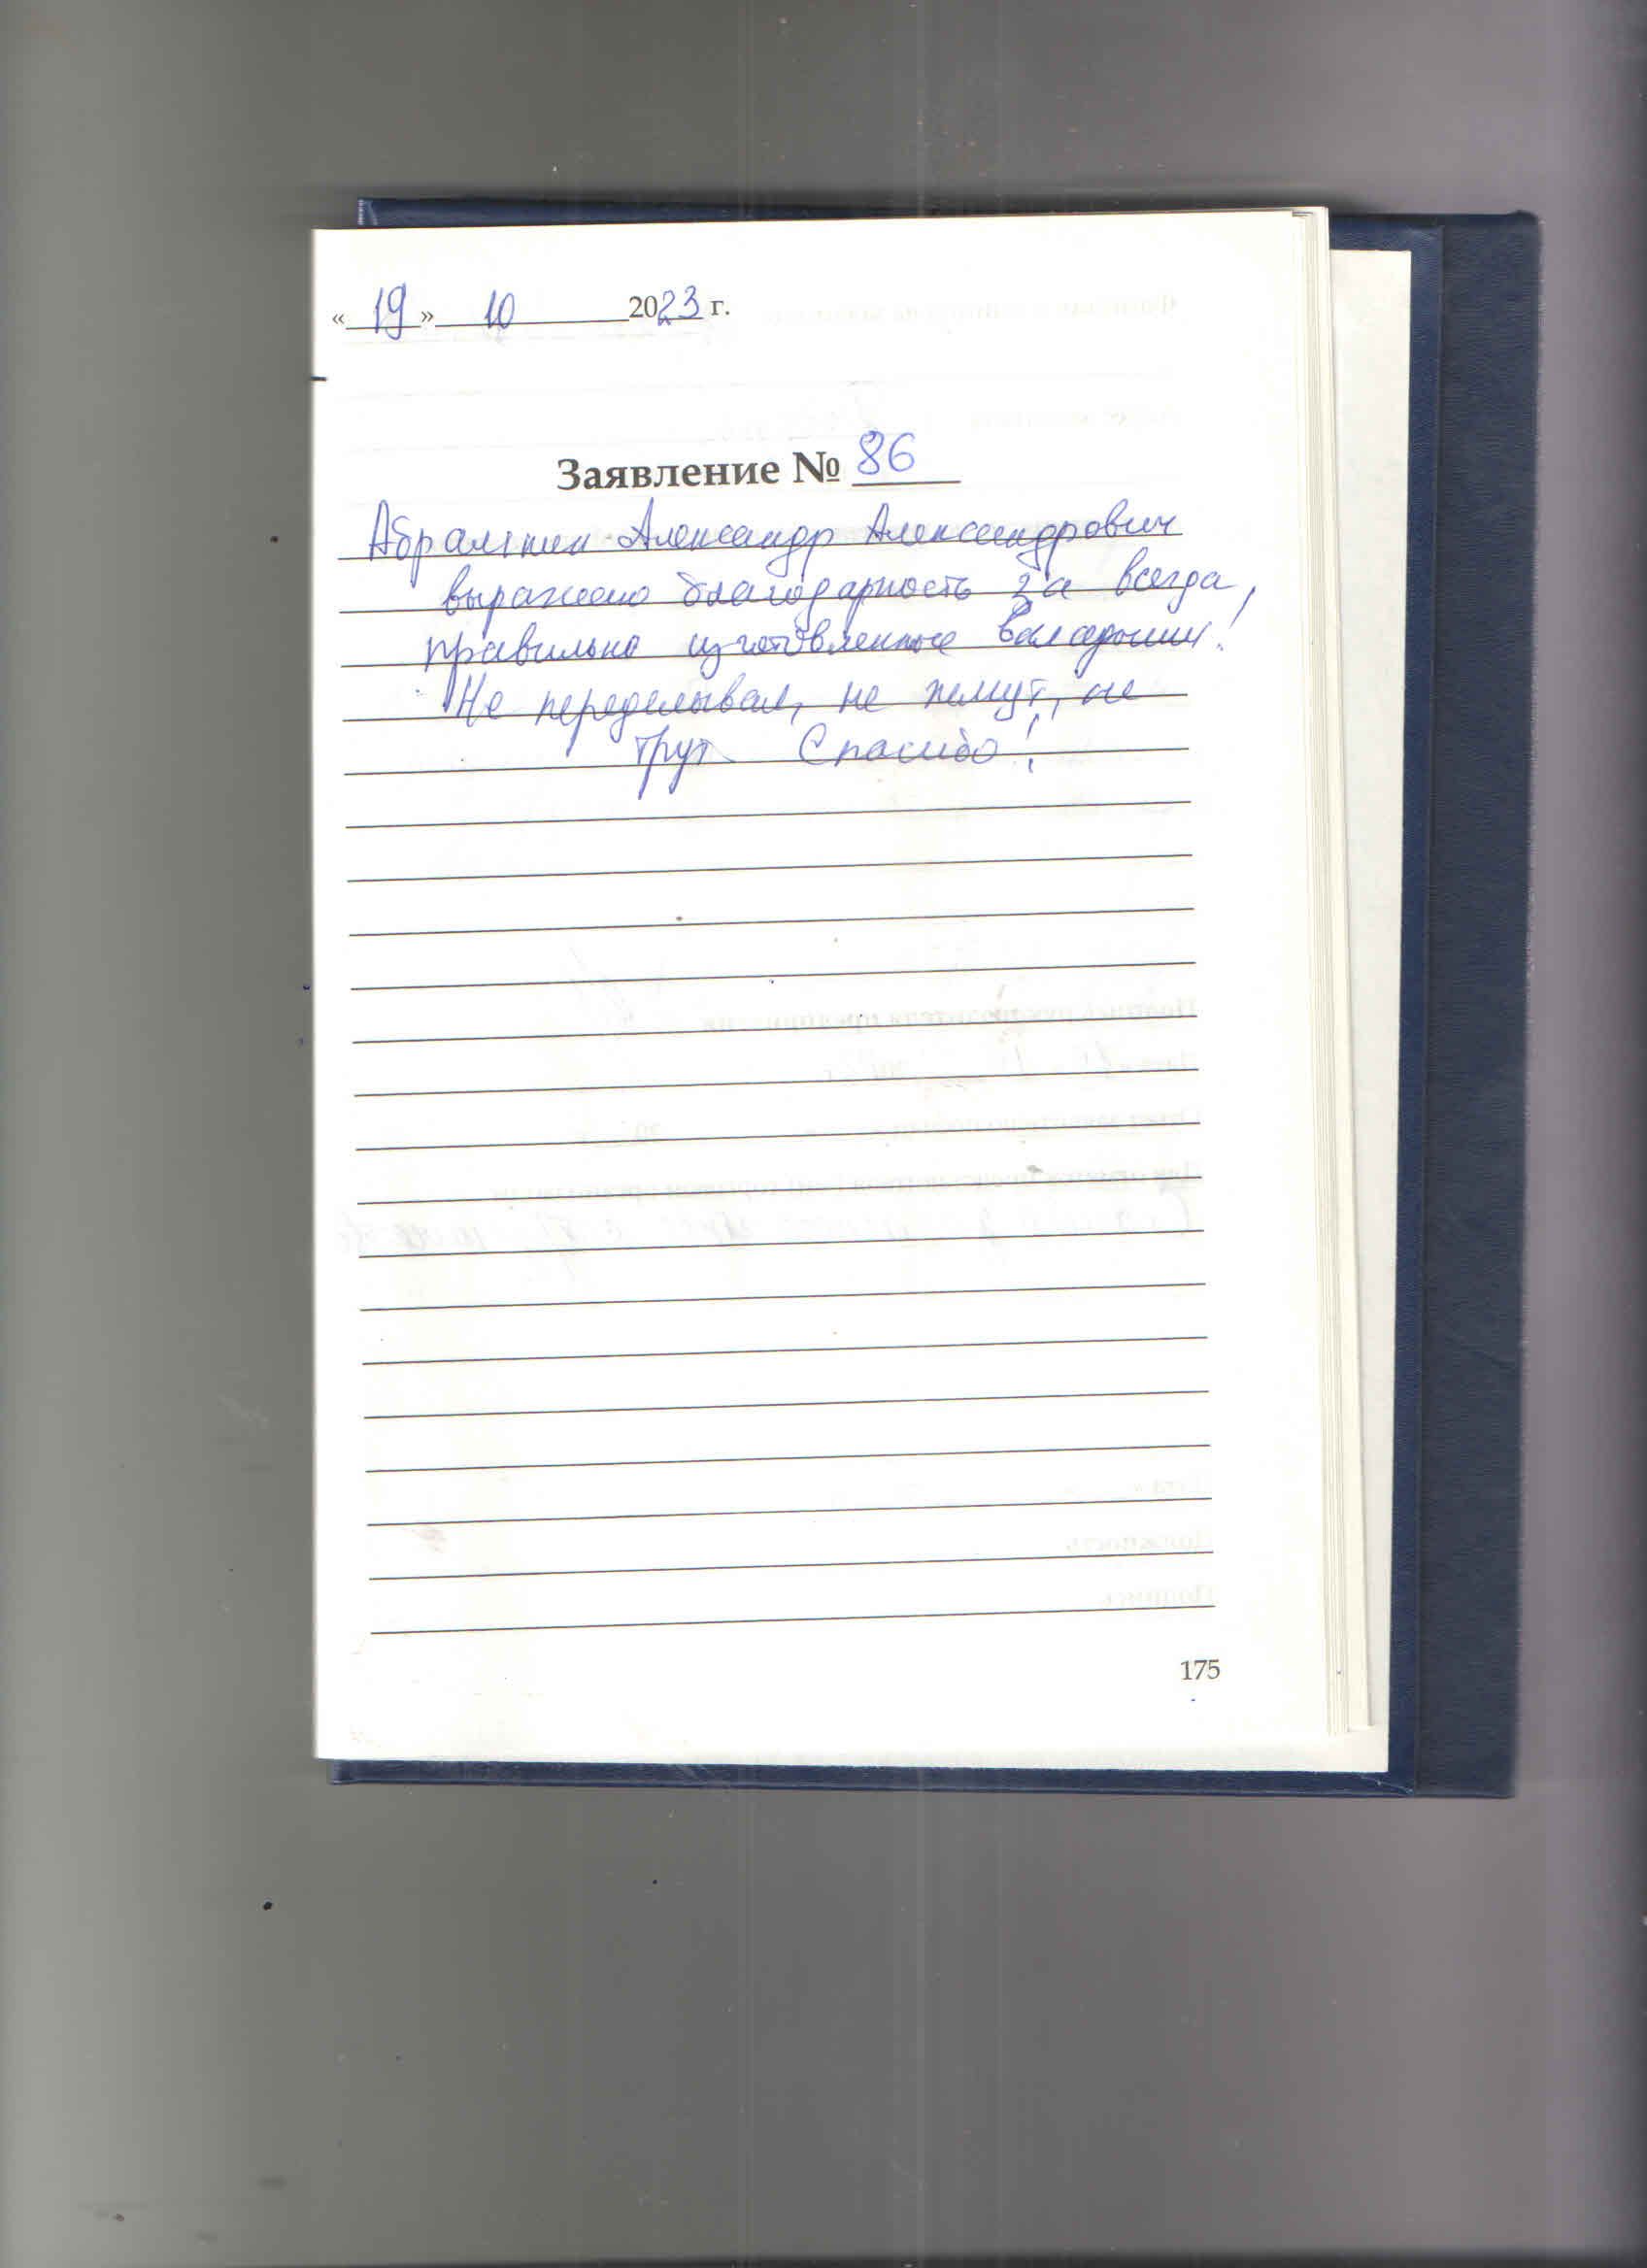 «19» 10 2023 г.
Заявление № 86
Александр Александрович
выражаю благодарность за всегда,
правильно изготовленные вкладыши!
Не переделывал, не жмут, не
трут Спасибо!
175